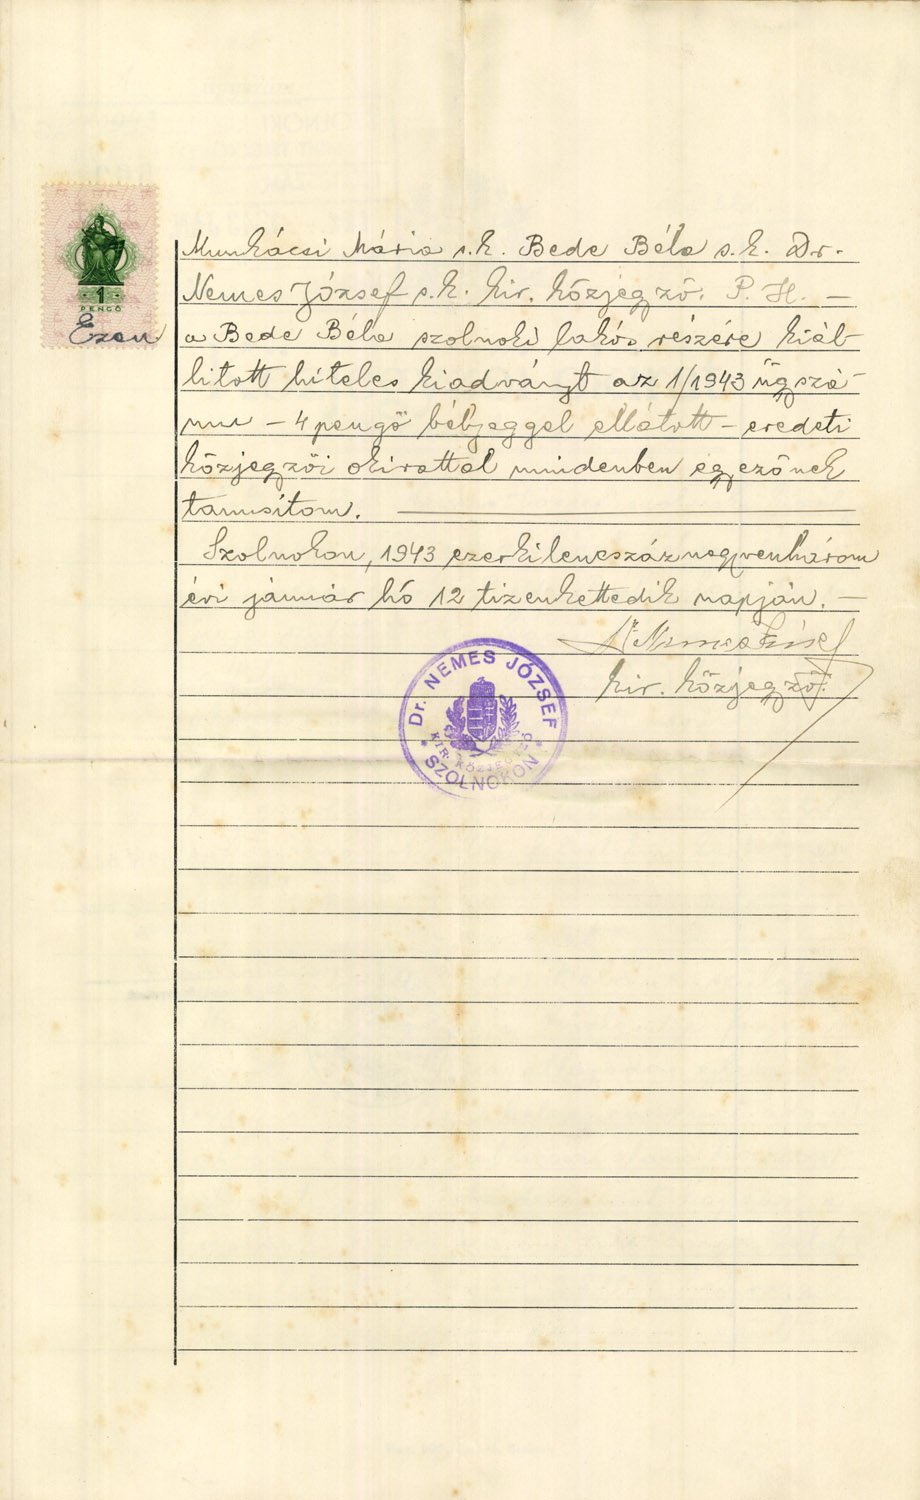 Munkácsi Mária s.k. Bede Béla s.k. Dr.
Nemes József s.k. kir. közjegyző. P. H. —
1
PENGŐ
Ezen a Bede Béla szolnoki lakós részére kiál-
litott hiteles kiadványt az 1/1943 ügyszá-
mu – 4 pengő bélyeggel ellátott – eredeti
közjegyzői okirattal mindenben egyezőnek
tanusítom. —
Szolnokon, 1943 ezerkilencszáznegyvenhárom
évi január hó 12 tizenkettedik napján. —
Dr Nemes József
kir. közjegyző.
Dr. NEMES JÓZSEF
KIR. KÖZJEGYZŐ
* SZOLNOKON *